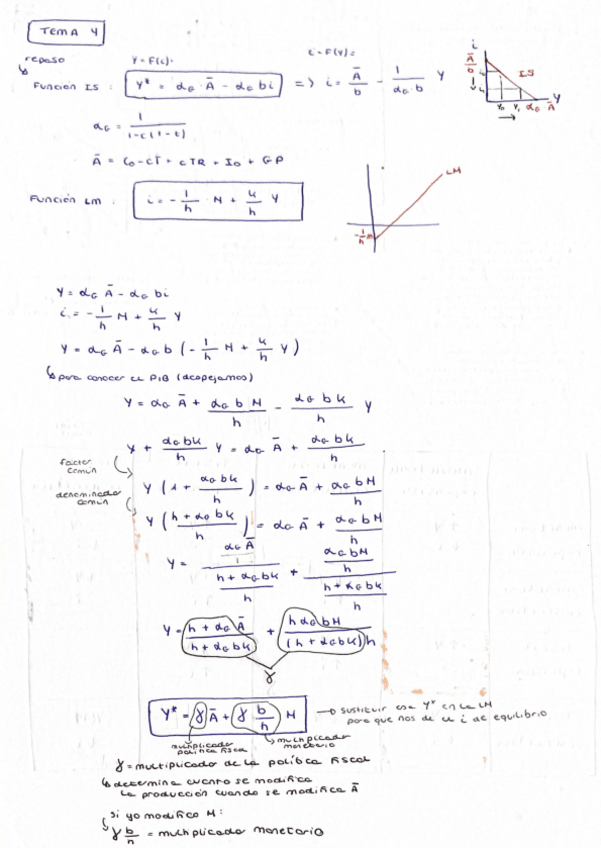 TEMA 4
repaso
Y = F(i)=
i = F(Y)=
Función IS : Y* = α_G · Ā - α_G b i => i = Ā/b - 1/(α_G · b) Y
i
Ā/b
IS
Y₀ Y₁ α_G Ā
Y
α_G = 1/(1-c(1-t))
Ā = C₀ - cT + cTR + I₀ + GP
Función LM : i = - 1/h · M + k/h Y
LM
-1/h M
Y = α_G Ā - α_G b i
i = - 1/h M + k/h Y
Y = α_G Ā - α_G b (- 1/h M + k/h Y)
↳ para conocer el PIB (despejamos)
Y = α_G Ā + α_G b M/h - α_G b k/h Y
Y + α_G b k/h Y = α_G Ā + α_G b k/h
factor común
Y (1 + α_G b k/h) = α_G Ā + α_G b M/h
denominador común
Y ((h + α_G b k)/h) = α_G Ā + α_G b M/h
Y = (α_G Ā/1)/((h + α_G b k)/h) + (α_G b M/h)/((h + α_G b k)/h)
Y = (h + α_G Ā)/(h + α_G b k) + (h α_G b M)/((h + α_G b k) h)
γ
Y* = γ Ā + γ b/h M → sustituir esa Y* en la LM
para que nos de el i de equilibrio
multiplicador política fiscal
multiplicador monetario
γ = multiplicador de la política fiscal
↳ determina cuanto se modifica
la producción cuando se modifica Ā
si yo modifico M:
↳ γ b/h = multiplicador monetario